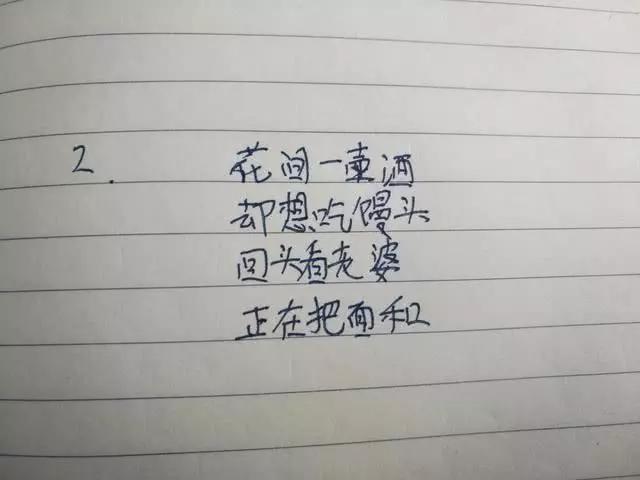 2.
花间一壶酒
却想吃馒头
回头看老婆
正在把面和